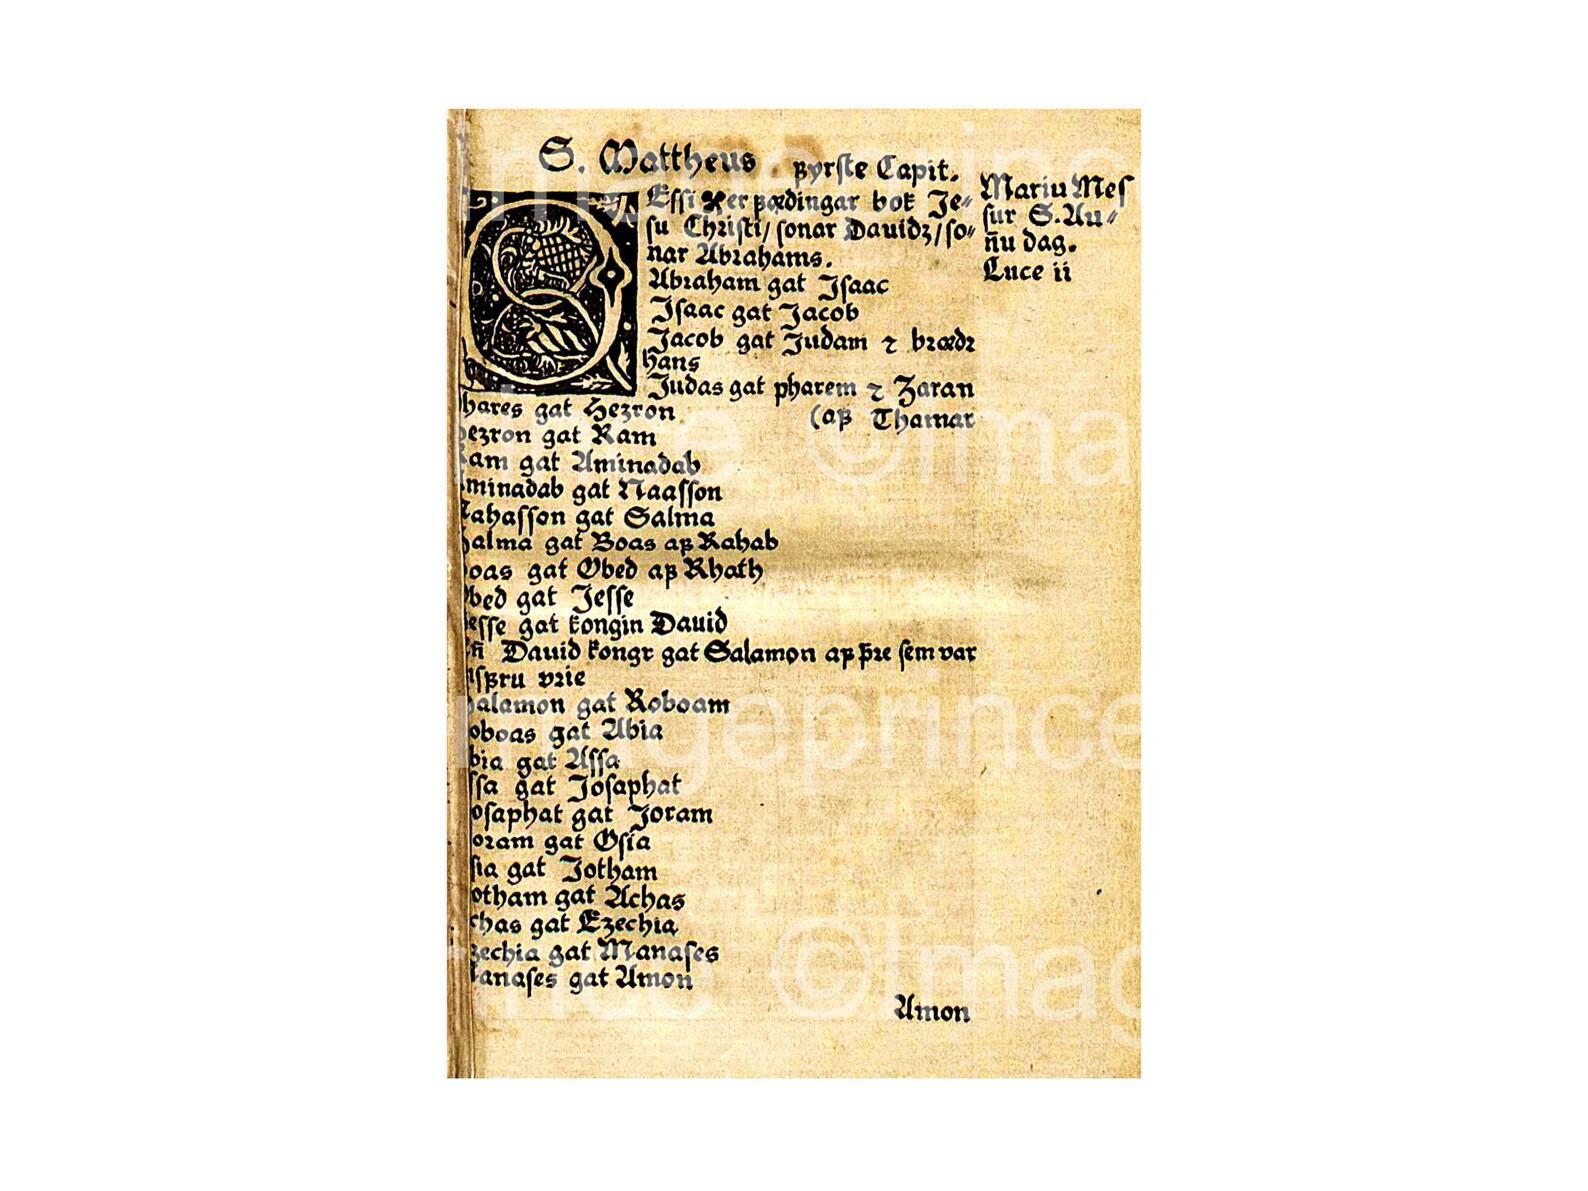 S. Mattheus ꝼyrste Capit.
Essi er ꝼædingar bok Je⸗
ſu Chriſti/ſonar Dauidz/ſo⸗
nar Abrahams.
Abraham gat Iſaac
Iſaac gat Jacob
Jacob gat Judam ⁊ brædr
hans
Judas gat pharem ⁊ Zaran
(aꝼ Thamar
hares gat Hezron
ezron gat Ram
am gat Aminadab
minadab gat Naaſſon
ahaſſon gat Salma
alma gat Boas aꝼ Rahab
oas gat Obed aꝼ Rhath
bed gat Jeſſe
eſſe gat kongin Dauid
ñ Dauid kongr gat Salamon aꝼ þre ſem var
uſꝼru vrie
alamon gat Roboam
oboas gat Abia
bia gat Aſſa
ſſa gat Joſaphat
oſaphat gat Joram
oram gat Oſia
ſia gat Jotham
otham gat Achas
chas gat Ezechia
zechia gat Manaſes
anaſes gat Amon
Amon
Mariu Meſ
ſur S. Au⸗
ñu dag.
Luce ii
©Imageprince